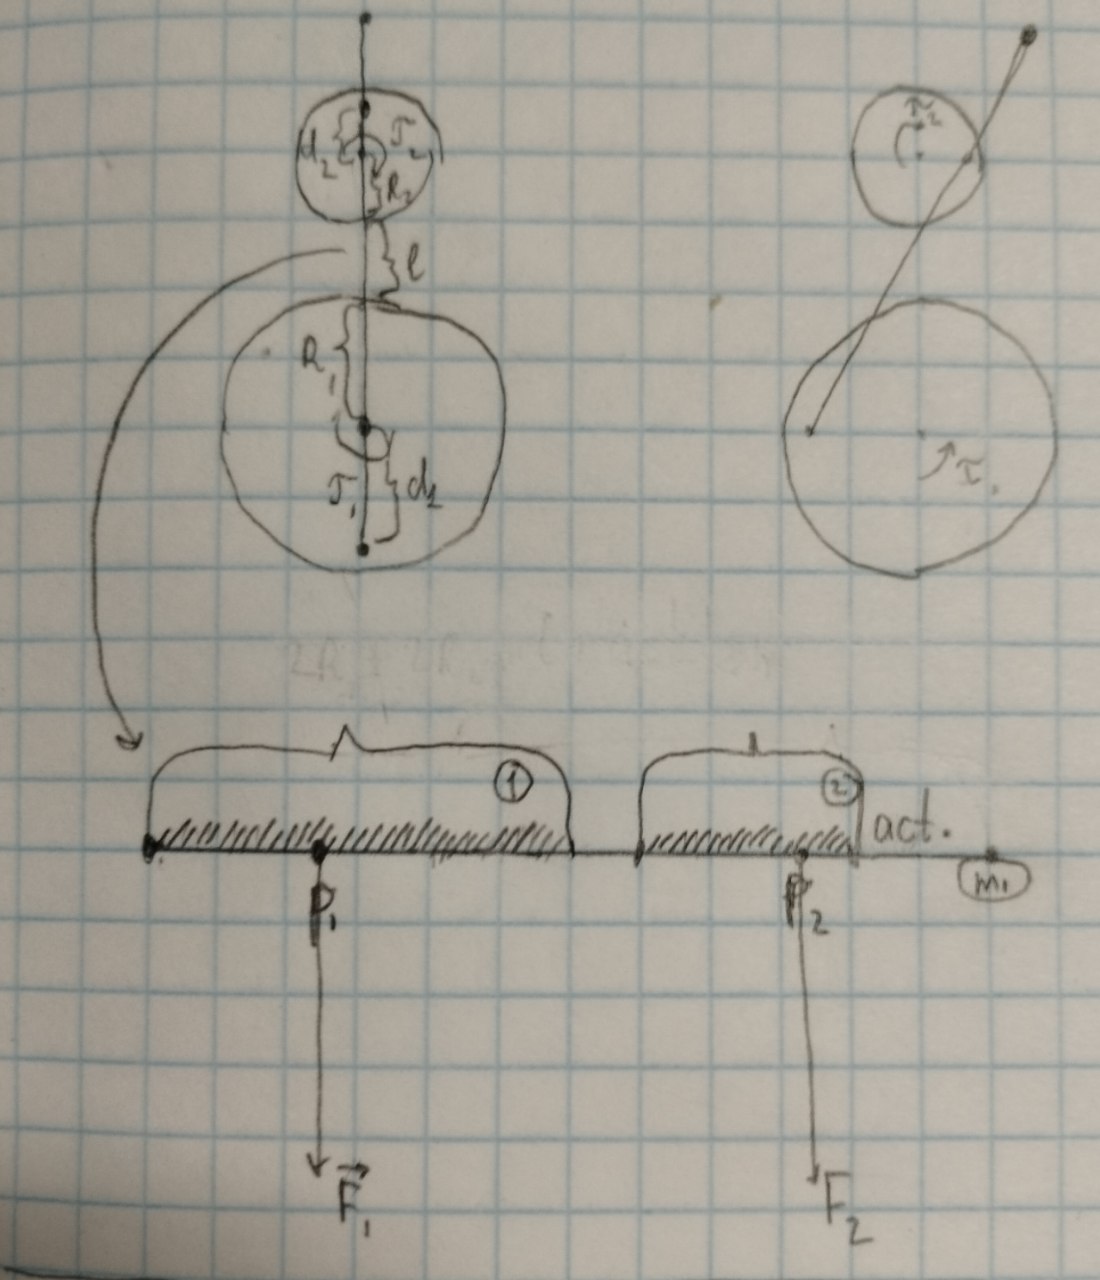 d₂
J₂
R₂
l
R₁
J₁
d₁
τ₂
τ₁
①
②
act.
P₁
P₂
m₁
F⃗₁
F₂